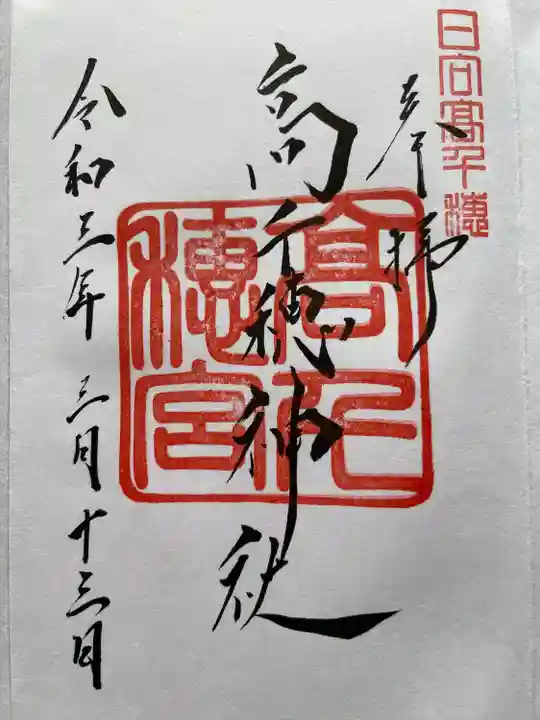 日向高千穂
奉拝
高千穂神社
高千穂宮
令和三年 三月十三日